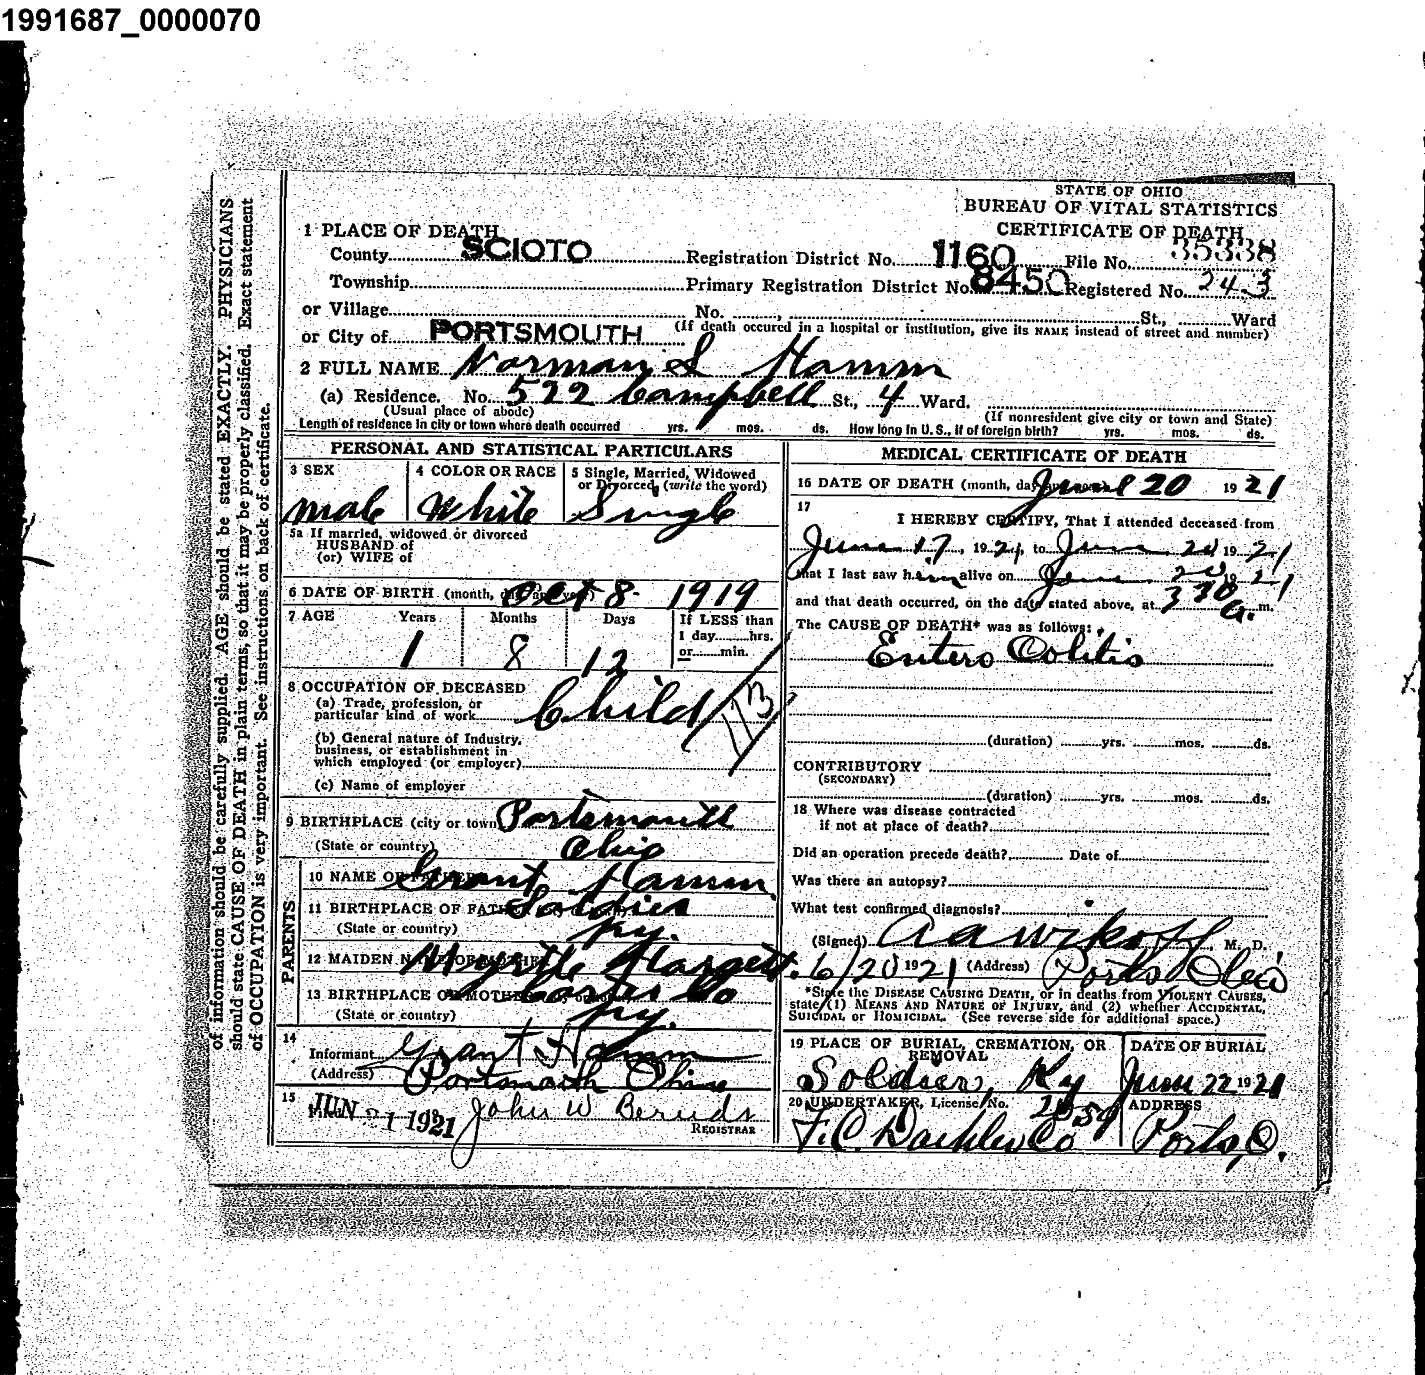 1991687_0000070
STATE OF OHIO
BUREAU OF VITAL STATISTICS
CERTIFICATE OF DEATH
1 PLACE OF DEATH
County SCIOTO Registration District No. 1160 File No. 35338
Township Primary Registration District No. 8450 Registered No. 243
or Village No. , St., Ward
or City of PORTSMOUTH (If death occured in a hospital or institution, give its NAME instead of street and number)
2 FULL NAME Norman S Hamm
(a) Residence. No. 522 Campbell St., 4 Ward.
(Usual place of abode) (If nonresident give city or town and State)
Length of residence in city or town where death occurred yrs. mos. ds. How long in U. S., if of foreign birth? yrs. mos. ds.
PERSONAL AND STATISTICAL PARTICULARS
3 SEX 4 COLOR OR RACE 5 Single, Married, Widowed
or Divorced, (write the word)
male White Single
5a If married, widowed or divorced
HUSBAND of
(or) WIFE of
6 DATE OF BIRTH (month, day and year) Oct 8 1919
7 AGE Years Months Days If LESS than
1 day hrs.
or min.
1 8 12
8 OCCUPATION OF DECEASED
(a) Trade, profession, or
particular kind of work Child 113
(b) General nature of Industry,
business, or establishment in
which employed (or employer)
(c) Name of employer
9 BIRTHPLACE (city or town) Portsmouth
(State or country) Ohio
PARENTS
10 NAME OF FATHER Grant Hamm
11 BIRTHPLACE OF FATHER Soldier
(State or country) Ky.
12 MAIDEN NAME OF MOTHER Myrtle
13 BIRTHPLACE OF MOTHER Carter Co
(State or country) Ky.
14
Informant Grant Hamm
(Address) Portsmouth Ohio
15
Filed JUN 21 1921 John W
REGISTRAR
MEDICAL CERTIFICATE OF DEATH
16 DATE OF DEATH (month, day and year) June 20 1921
17
I HEREBY CERTIFY, That I attended deceased from
June 17, 1921, to June 20 1921
that I last saw him alive on June 20 1921
and that death occurred, on the date stated above, at 330 a. m.
The CAUSE OF DEATH* was as follows:
Entero Colitis
(duration) yrs. mos. ds.
CONTRIBUTORY
(SECONDARY)
(duration) yrs. mos. ds.
18 Where was disease contracted
if not at place of death?
Did an operation precede death? Date of
Was there an autopsy?
What test confirmed diagnosis?
(Signed) M. D.
6/20 1921 (Address) Ports Ohio
*State the DISEASE CAUSING DEATH, or in deaths from VIOLENT CAUSES,
state (1) MEANS AND NATURE OF INJURY, and (2) whether ACCIDENTAL,
SUICIDAL or HOMICIDAL. (See reverse side for additional space.)
19 PLACE OF BURIAL, CREMATION, OR
REMOVAL
DATE OF BURIAL
Soldier, Ky June 22 1921
20 UNDERTAKER, License No.
ADDRESS
F. C. Daehler Co Ports, O.
of information should be carefully supplied. AGE should be stated EXACTLY. PHYSICIANS
should state CAUSE OF DEATH in plain terms, so that it may be properly classified. Exact statement
of OCCUPATION is very important. See instructions on back of certificate.